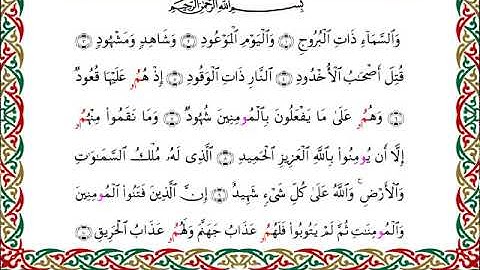 بِسْمِ اللَّهِ الرَّحْمَٰنِ الرَّحِيمِ
وَٱلسَّمَآءِ ذَاتِ ٱلْبُرُوجِ وَٱلْيَوْمِ ٱلْمَوْعُودِ وَشَاهِدٍ وَمَشْهُودٍ
قُتِلَ أَصْحَٰبُ ٱلْأُخْدُودِ ٱلنَّارِ ذَاتِ ٱلْوَقُودِ إِذْ هُمُۥ عَلَيْهَا قُعُودٌ
وَهُمُۥ عَلَىٰ مَا يَفْعَلُونَ بِٱلْمُومِنِينَ شُهُودٌ وَمَا نَقَمُوا۟ مِنْهُمُۥ
إِلَّا أَن يُومِنُوا۟ بِٱللَّهِ ٱلْعَزِيزِ ٱلْحَمِيدِ ٱلَّذِى لَهُۥ مُلْكُ ٱلسَّمَٰوَٰتِ
وَٱلْأَرْضِ ۚ وَٱللَّهُ عَلَىٰ كُلِّ شَىْءٍ شَهِيدٌ إِنَّ ٱلَّذِينَ فَتَنُوا۟ ٱلْمُومِنِينَ
وَٱلْمُومِنَٰتِ ثُمَّ لَمْ يَتُوبُوا۟ فَلَهُمُۥ عَذَابُ جَهَنَّمَ وَلَهُمُۥ عَذَابُ ٱلْحَرِيقِ